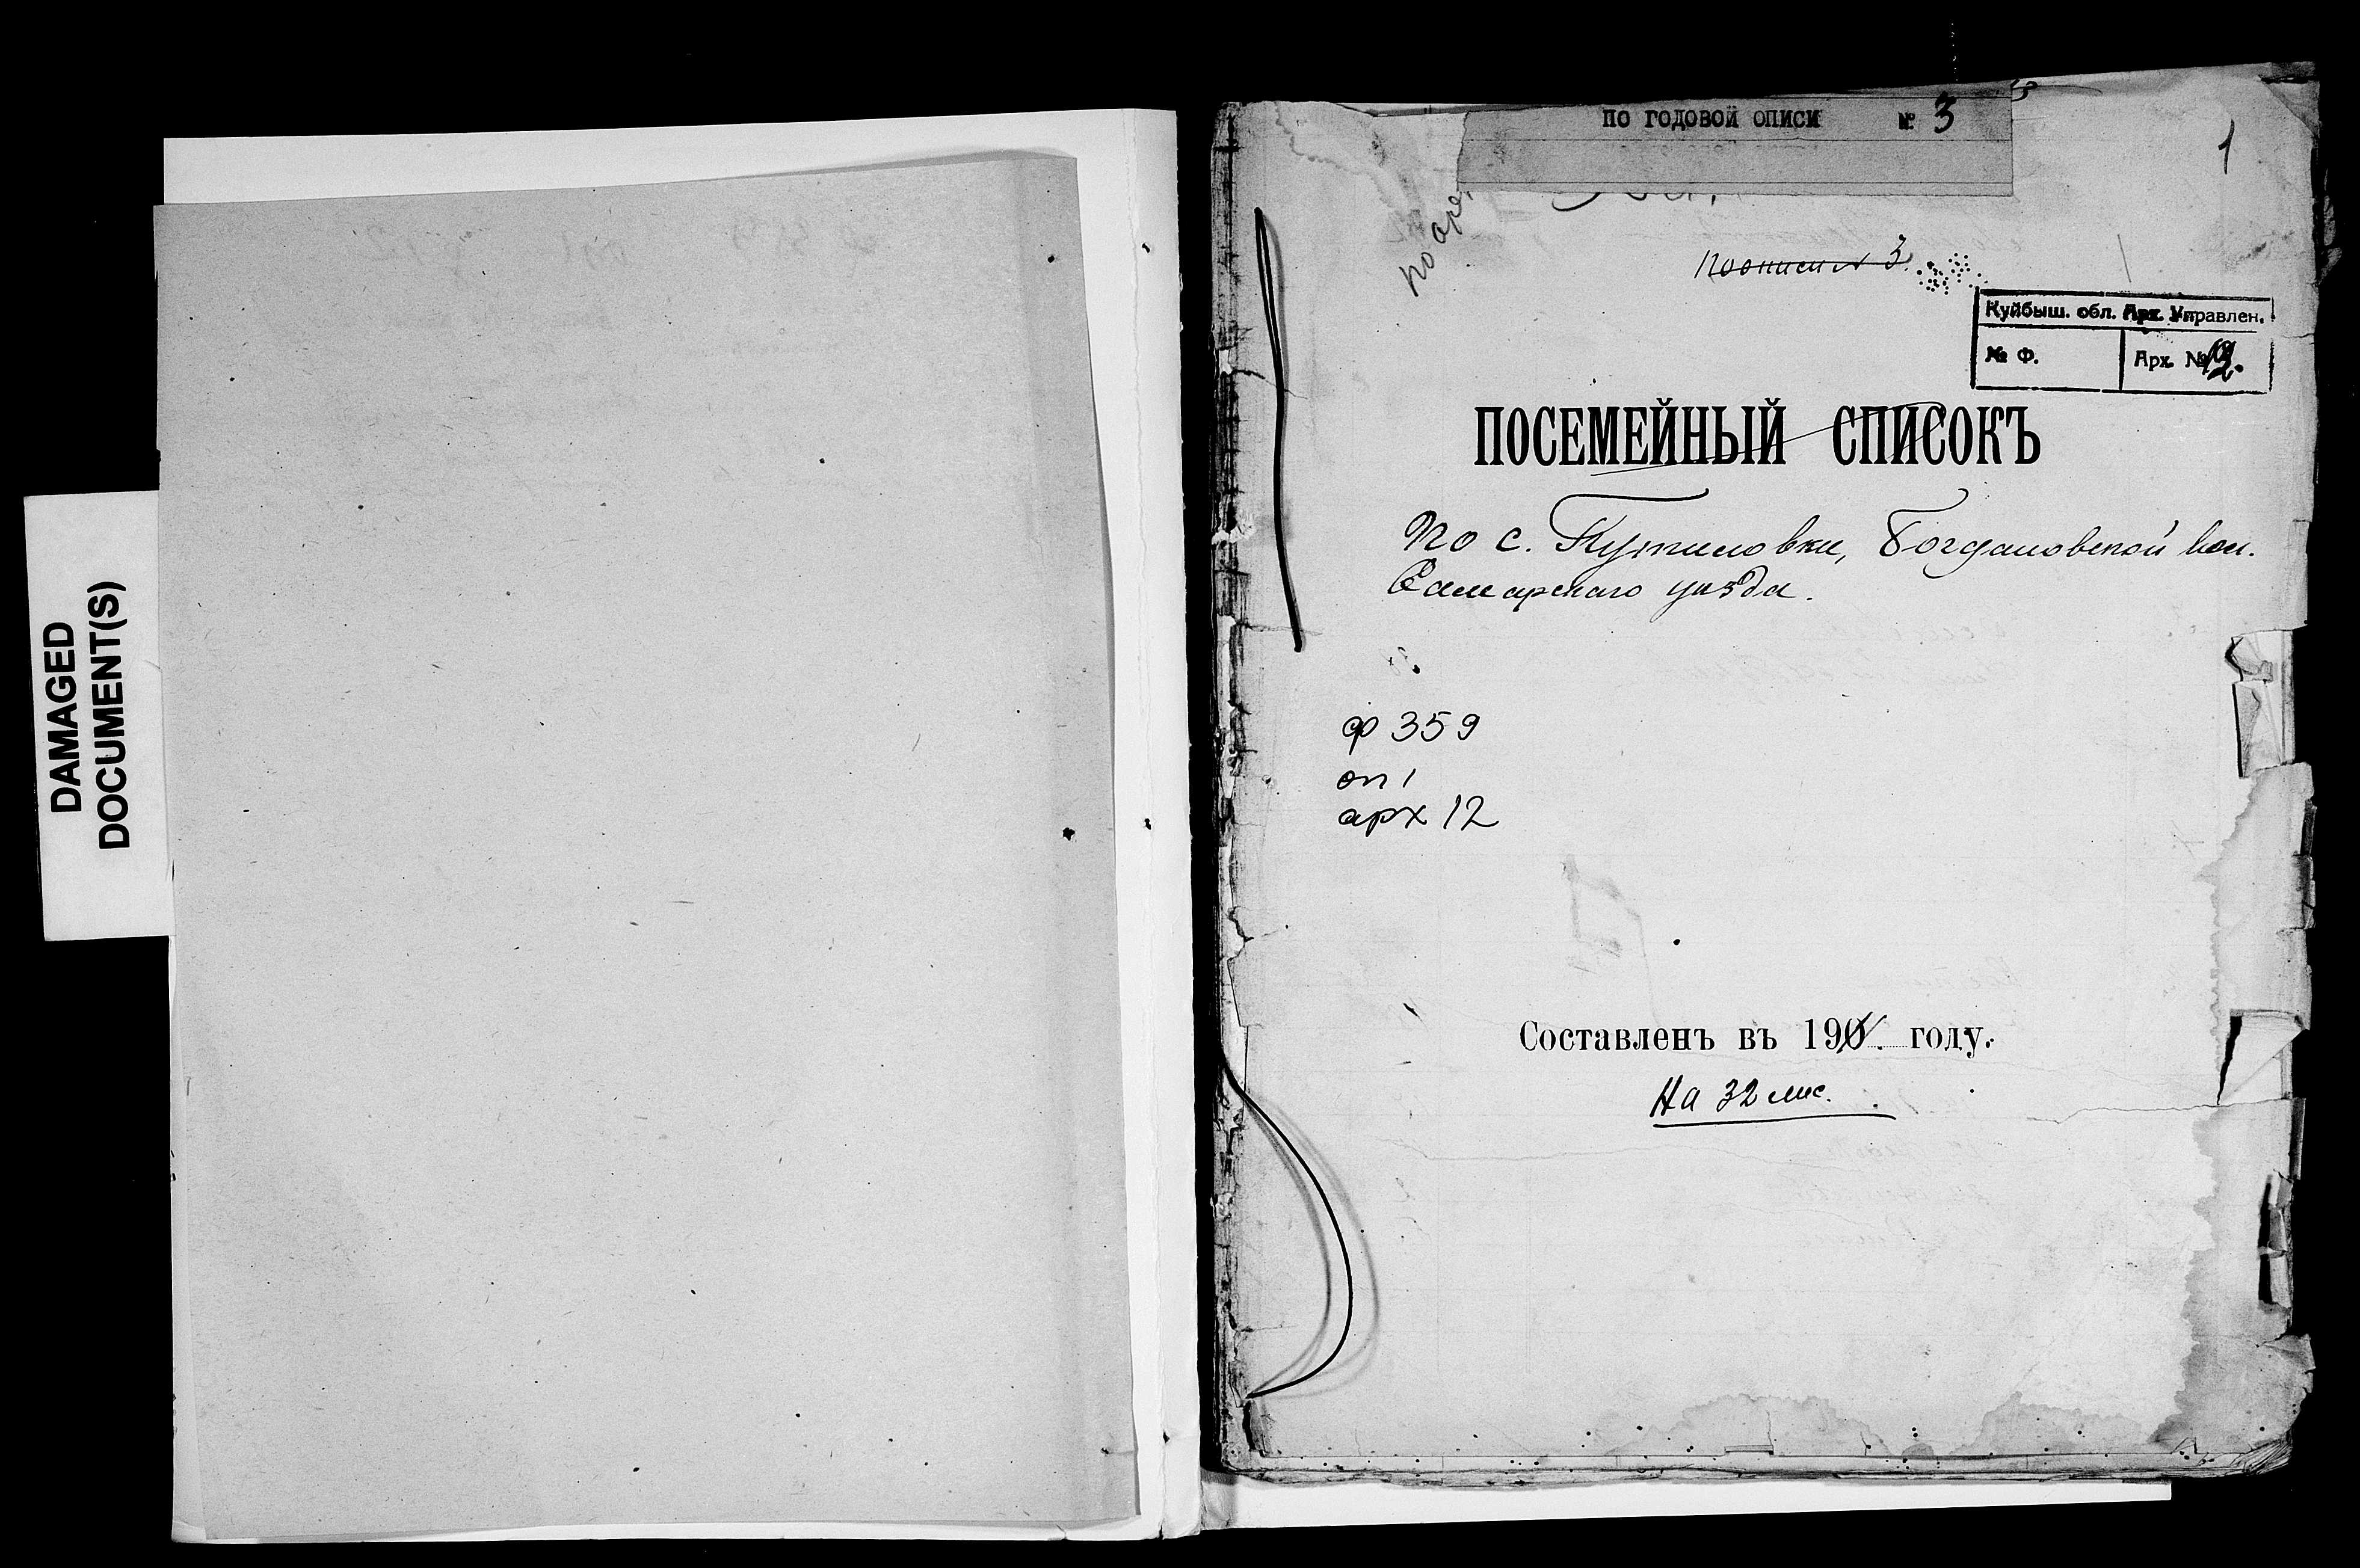 DAMAGED
DOCUMENT(S)
ПО ГОДОВОЙ ОПИСИ № 3
1
По описи № 3.
Куйбыш. обл. Арх. Управлен.
№ Ф. Арх. № 12.
ПОСЕМЕЙНЫЙ СПИСОКЪ
По с. Кутиловки, Богдановской вол.
Самарскаго уѣзда.
ф 359
оп 1
арх 12
Составленъ въ 190 году.
На 32 лис.